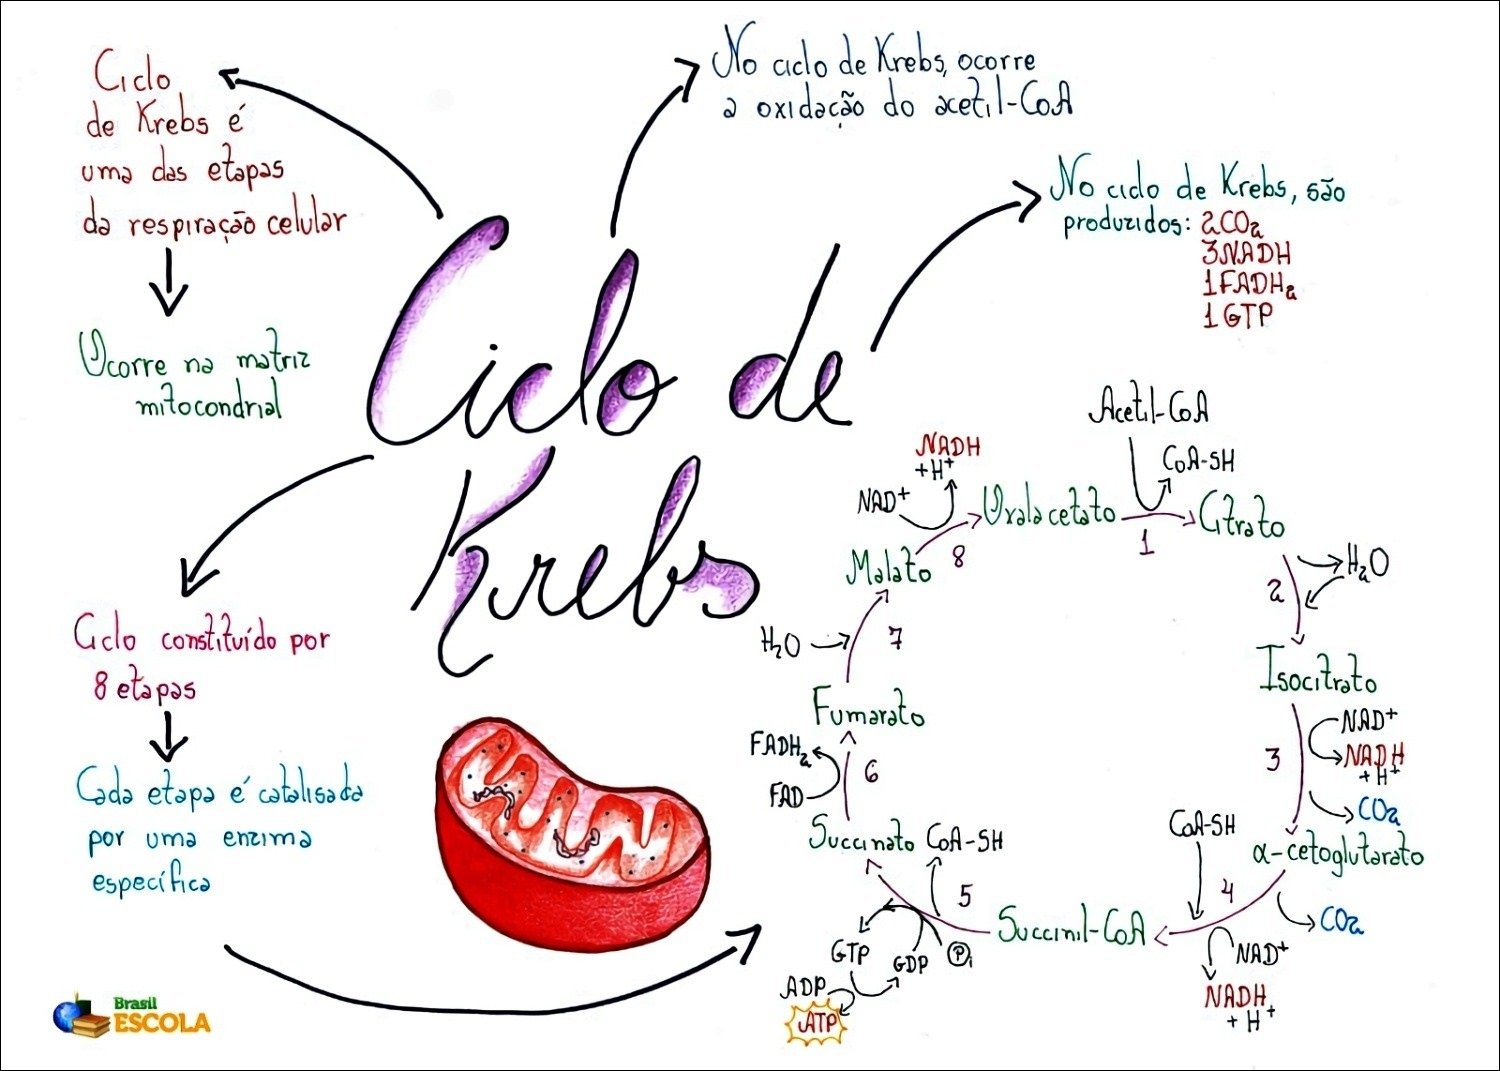 Ciclo
de Krebs é
uma das etapas
da respiração celular
Ocorre na matriz
mitocondrial
No ciclo de Krebs, ocorre
a oxidação do acetil-CoA
No ciclo de Krebs, são
produzidos: 2CO₂
3NADH
1FADH₂
1GTP
Ciclo de
Krebs
Ciclo constituído por
8 etapas
Cada etapa é catalisada
por uma enzima
específica
Acetil-CoA
CoA-SH
Oxalacetato
1
Citrato
2
H₂O
Isocitrato
3
NAD⁺
NADH
+ H⁺
CO₂
α-cetoglutarato
CoA-SH
4
CO₂
NAD⁺
NADH
+ H⁺
Succinil-CoA
5
CoA-SH
Pi
GDP
GTP
ADP
ATP
Succinato
6
FAD
FADH₂
Fumarato
7
H₂O
Malato
8
NAD⁺
NADH
+H⁺
Brasil
ESCOLA